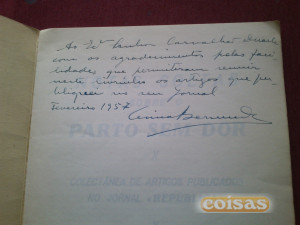 Ao Exº Senhor Carvalhão Duarte
com os agradecimentos pelas faci
lidades que permitiram reunir
neste os artigos que pu
bliquei no seu jornal
Fevereiro 1957
PARTO SEM DOR
COLECTÂNEA DE ARTIGOS PUBLICADOS
NO JORNAL «REPÚBLICA»
coisas